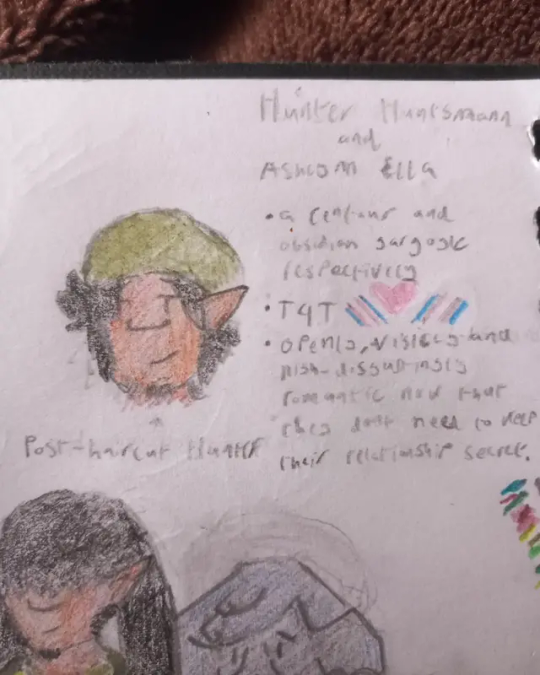 Hunter Huntsmann
and
Ashlynn Ella
• a centaur and
obsidian gargoyle
respectively
• T4T
• openly, visibly and
romantic now that
they don't need to keep
their relationship secret.
Post-haircut Hunter